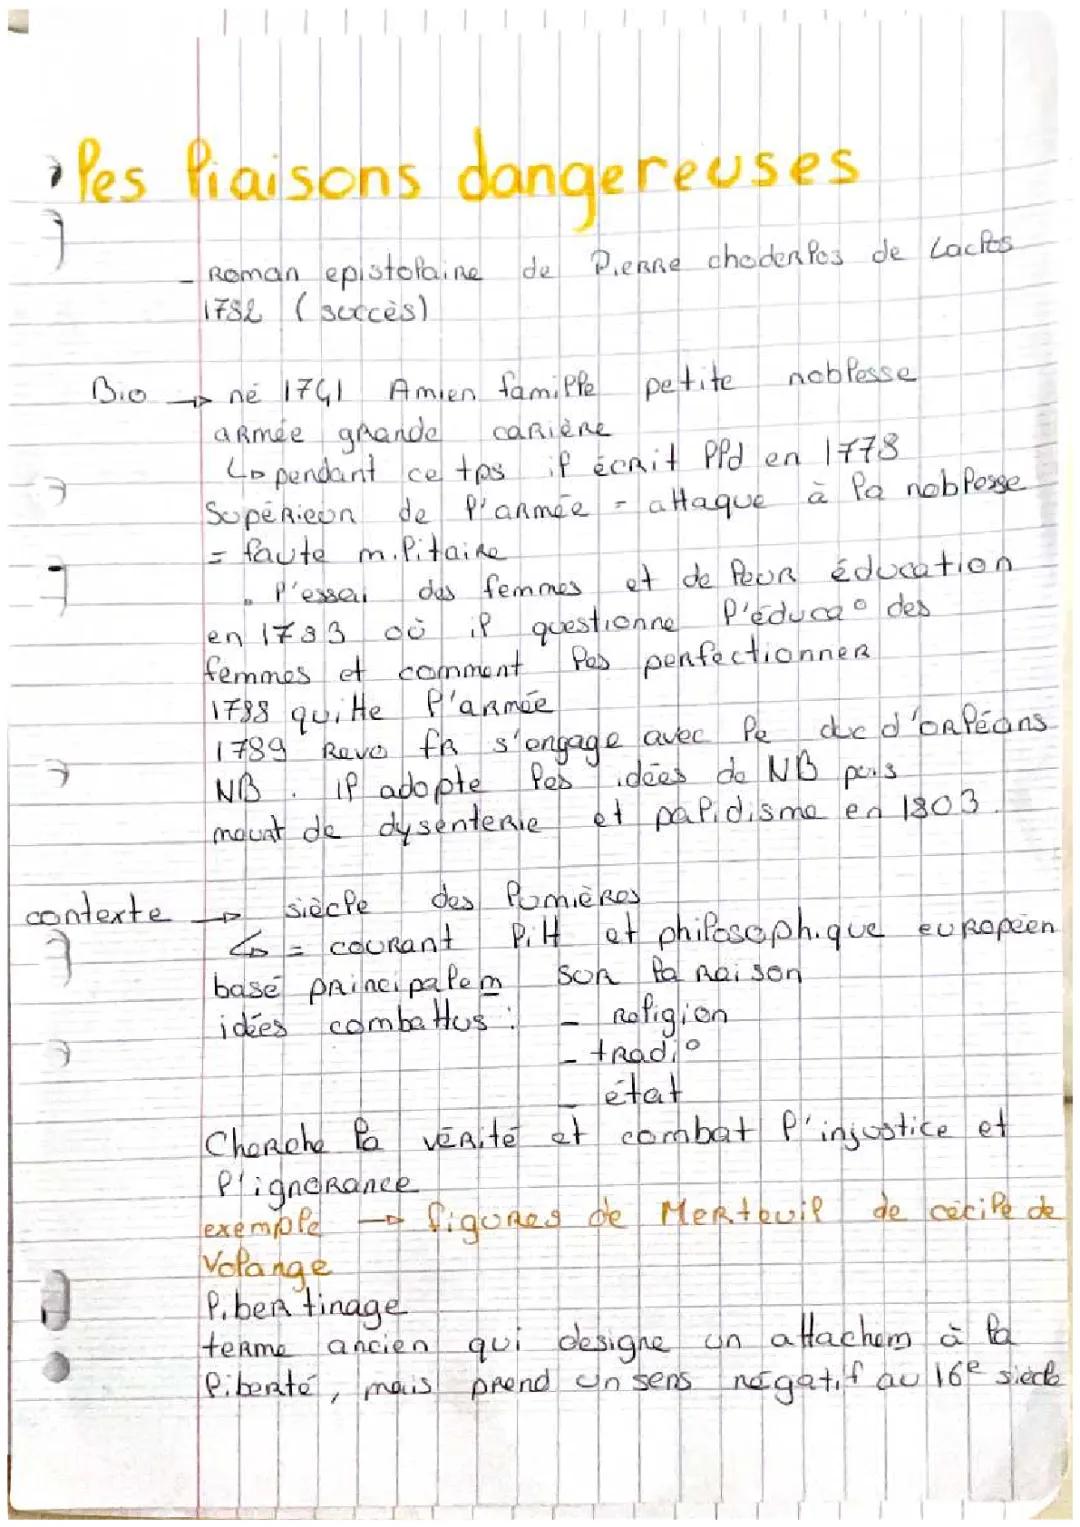 les liaisons dangereuses
- Roman epistolaire de Pierre choderlos de Laclos
1782 (succès)
Bio → né 1741 Amien famille petite noblesse
armée grande carière
↳ pendant ce tps il écrit lld en 1778
Supérieur de l'armée = attaque à la noblesse
= faute militaire
• l'essai des femmes et de leur éducation
en 1783 où il questionne l'éduca° des
femmes et comment les perfectionner
1788 quitte l'armée
1789 Revo fr s'engage avec le duc d'orléans
NB. il adopte les idées de NB puis
meurt de dysenterie et palidisme en 1803.
contexte → siècle des lumières
↳ = courant litt et philosophique européen
basé principalem sur la raison
idées combattus : - religion
- tradi°
- état
Cherche la vérité et combat l'injustice et
l'ignorance
exemple → figures de Merteuil de cécile de
Volange
libertinage
terme ancien qui designe un attachem à la
liberté, mais prend un sens négatif au 16e siècle